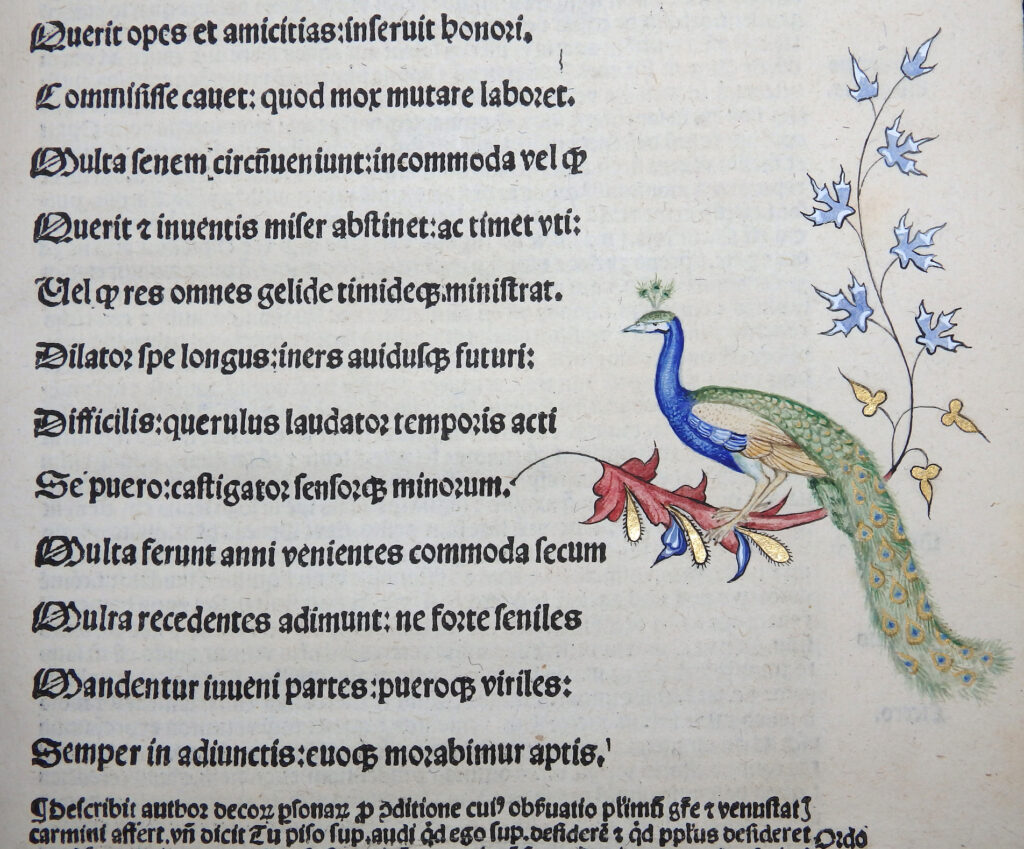 Querit opes et amicitias:inseruit honori.
Commisisse cauet: quod mox mutare laboret.
Multa senem circūueniunt:incommoda vel ꝙ
Querit ⁊ inuentis miser abstinet:ac timet vti:
Uel ꝙ res omnes gelide timideqꝫ.ministrat.
Dilator spe longus:iners auidusqꝫ futuri:
Difficilis:querulus laudator temporis acti
Se puero:castigator sensorqꝫ minorum.
Multa ferunt anni venientes commoda secum
Mulra recedentes adimunt: ne forte seniles
Mandentur iuueni partes:pueroqꝫ viriles:
Semper in adiunctis:euoqꝫ morabimur aptis.
¶Describit author decoꝝ ꝑsonaꝝ ꝓ ꝯditione cuiꝰ obẜuatio gr̄e ⁊ venustat
carmini affert.vn̄ dicit Tu piso sup.audi qd̄ ego sup.desiderē ⁊ qd̄ desideret Ordo